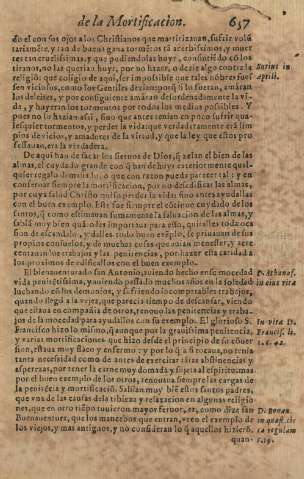 de la Mortificacion. 657
do el con sus ojos a los Christianos que martirizauan, sufrir volũ
tariamẽte, y tan de buena gana tormẽtos tã acerbissimos, y muer
tes tan cruelissimas, y que pudiendolas huyr, consintiẽdo cõ los
tiranos, no las querian huyr, por no hazer, o dezir algo contra la
religiõ: que coligio de aqui, ser impossible que tales hõbres fues
sen viciosos, como los Gentiles deziã: porq̃ si lo fueran, amaran
los deleites, y por consiguiente amarã desordenadamente la vi-
da, y huyeran los tormentos por todos los medios possibles. Y
pues no lo hazian assi, sino que antes tenian en poco sufrir qua-
lesquier tormentos, y perder la vida: que verdaderamente erã lim
pios de vicios, y amadores de la virtud, y que la ley que estos pro
fessauan, era la verdadera.
Surius in
April.
De aqui han de sacar los sieruos de Dios, q̃ zelan el bien de las
almas, el cuydado grande con q̃ han de huyr exteriormente qual-
quier regalo demasiado, o que con razon pueda parecer tal: y en
conseruar siempre la mortificacion, por no desedificar las almas,
por cuya salud Christo quiso perder la vida: sino antes ayudallas
con el buen exemplo. Este fue siempre el estilo y cuydado de los
santos, q̃ como estimauan sumamente la saluacion de las almas, y
sabiã muy bien quã odes importaua para esto, quitalles toda oca
sion de escandalo, y dalles todo buen exemplo, se priuauan de sus
propios consuelos, y de muchas cosas que auian menester, y acre
centauan los trabajos y las penitencias, por hazer esta caridad a
los proximos de edificallos con el buen exemplo.
El bienauenturado san Antonio, auiendo hecho en su mocedad
vida penitẽtissima, y auiendo passado muchos años en la soledad
luchando cõ los demonios, y sufriendo incomportables trabajos,
quando llegó a la vejez, que parecia tiempo de descansar, viendo
que estaua en compañia de otros, renouò las penitencias y traba-
jos de la mocedad para ayudallos con su exemplo. El glorioso S.
Francisco hizo lo mismo, q̃ aunque por la grauissima penitencia,
y varias mortificaciones que hizo desde el principio de su conuer
sion, estaua muy flaco y enfermo: y por lo q̃ a si tocaua, no tenia
tanta necessidad como de antes de exercitar estas abstinencias y
asperezas, por tener la carne muy domada y sujeta al espiritu: mas
por el buen exemplo de los otros, renouaua siempre las cargas de
la penitẽcia y mortificaciõ. Sabian muy biẽ estos santos padres,
que vna de las causas de la tibieza y relaxacion en algunas religio
nes, que en otro tiẽpo tuuieron mayor feruor, es, como dize san
Buenauenture, que los mancebos que entran, veen el exemplo de
los viejos, y mas antiguos, y no consideran lo q̃ aquellos hiziero.
quan-
D. Athanas.
in eius vita
In vita D.
Francis. li.
1. c. 42.
D. Bonau.
in quæst. cir
ca regulam
q. 19.